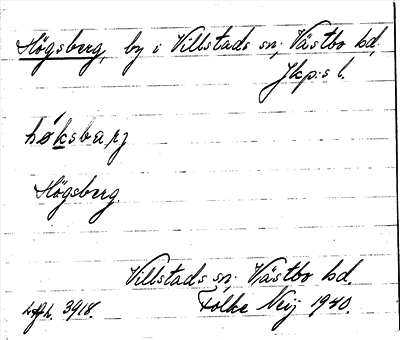 Högsberg, by i Villstads sn; Västbo hd,
Jkp:s l.
Högsberg.
Villstads sn; Västbo hd.
3918. Folke Neij 1940.